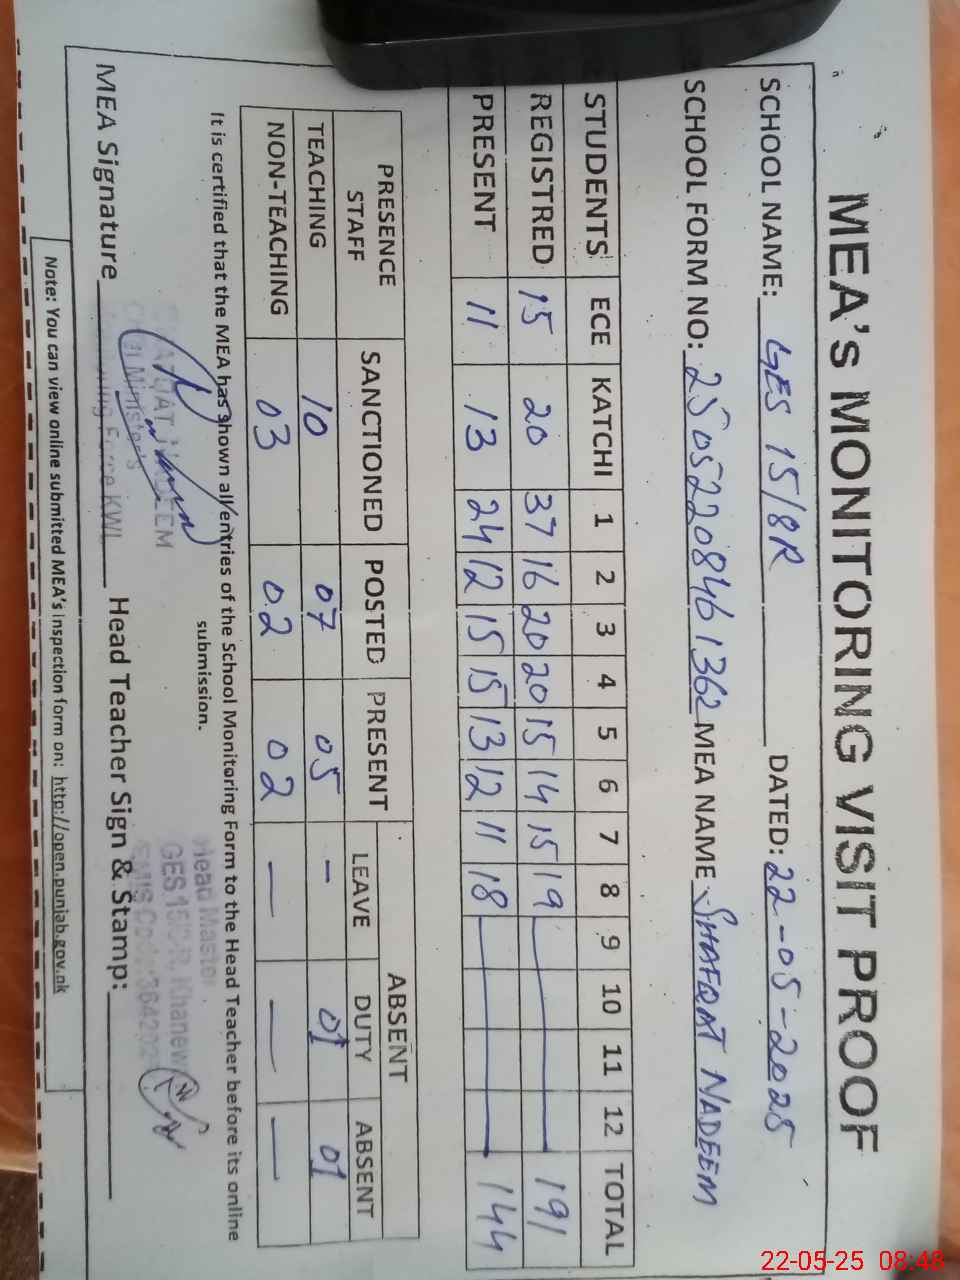 MEA's MONITORING VISIT PROOF
SCHOOL NAME: GES 15/8R DATED: 22-05-2025
SCHOOL FORM NO: 25052208461362 MEA NAME SHAFQAT NADEEM
STUDENTS ECE KATCHI 1 2 3 4 5 6 7 8 9 10 11 12 TOTAL
REGISTRED 15 20 37 16 20 20 15 14 15 19 191
PRESENT 11 13 24 12 15 15 13 12 11 18 144
PRESENCE STAFF SANCTIONED POSTED PRESENT ABSENT
LEAVE DUTY ABSENT
TEACHING 10 07 05 - 01 01
NON-TEACHING 03 02 02 — — —
It is certified that the MEA has shown all entries of the School Monitoring Form to the Head Teacher before its online
submission.
NADEEM
Chief Minister's
Monitoring Force KWL
Head Master
GES 15/8-R, Khanewal
EMIS Code
MEA Signature Head Teacher Sign & Stamp:
Note: You can view online submitted MEA's inspection form on: http://open.punjab.gov.pk
22-05-25 08:48